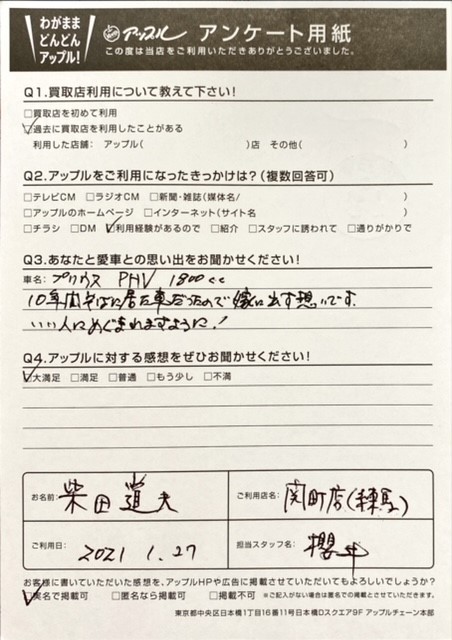 わがまま
どんどん
アップル!
アップル アンケート用紙
この度は当店をご利用いただきありがとうございました。
Q1.買取店利用について教えて下さい!
□買取店を初めて利用
☑過去に買取店を利用したことがある
利用した店舗: アップル( )店 その他( )
Q2.アップルをご利用になったきっかけは?(複数回答可)
□テレビCM □ラジオCM □新聞・雑誌(媒体名/ )
□アップルのホームページ □インターネット(サイト名 )
□チラシ □DM ☑利用経験があるので □紹介 □スタッフに誘われて □通りがかりで
Q3.あなたと愛車との思い出をお聞かせください!
車名: プリウス PHV 1800cc
10年間そばに居た車だったので嫁に出す想いです.
いい人にめぐまれますように!
Q4.アップルに対する感想をぜひお聞かせください!
☑大満足 □満足 □普通 □もう少し □不満
お名前: 柴田 道夫
ご利用店名: 関町店(練馬)
ご利用日: 2021 1.27
担当スタッフ名: 櫻井
お客様に書いていただいた感想を、アップルHPや広告に掲載させていただいてもよろしいでしょうか?
☑実名で掲載可 □匿名なら掲載可 □掲載不可 ※ご記入がない場合は匿名での掲載とさせていただきます。
東京都中央区日本橋1丁目16番11号日本橋Dスクエア9F アップルチェーン本部